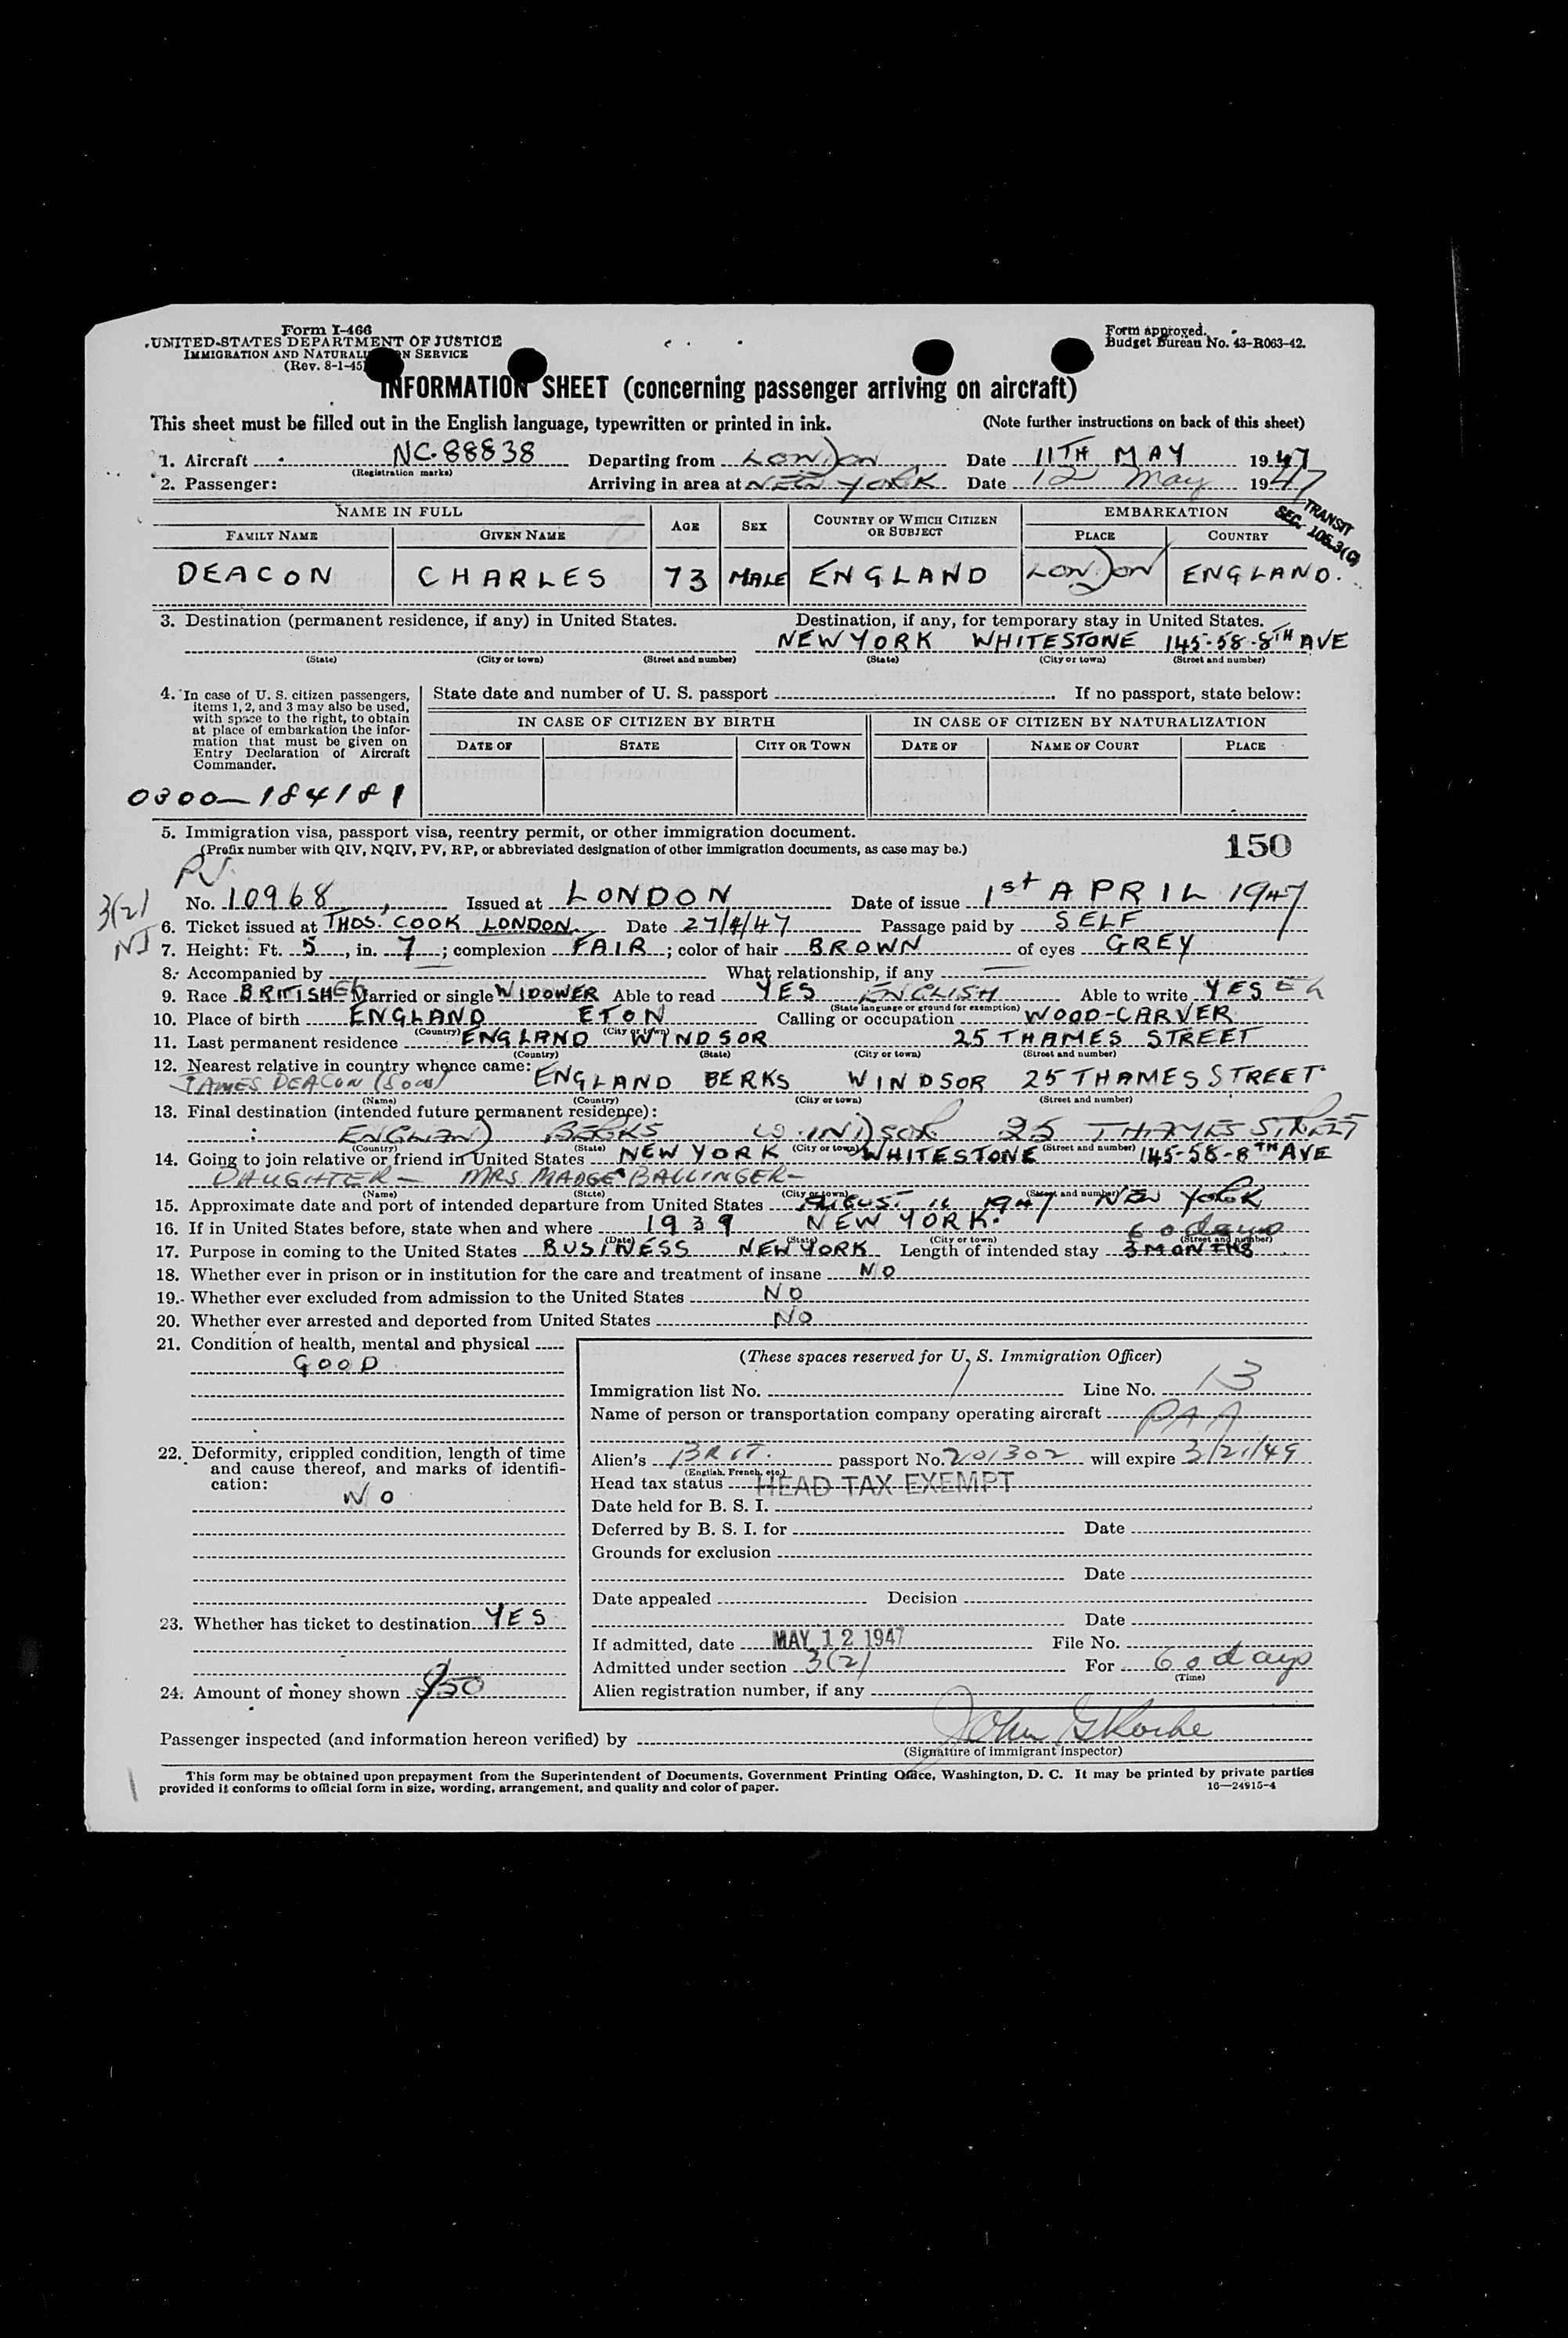 Form I-466
UNITED STATES DEPARTMENT OF JUSTICE
IMMIGRATION AND NATURALI N SERVICE
(Rev. 8-1-45)
Form approved.
Budget Bureau No. 43-R063-42.
INFORMATION SHEET (concerning passenger arriving on aircraft)
This sheet must be filled out in the English language, typewritten or printed in ink. (Note further instructions on back of this sheet)
1. Aircraft NC.88838 Departing from LONDON Date 11TH MAY 1947
(Registration marks)
2. Passenger: Arriving in area at NEW YORK Date 12 May 1947
TRANSIT
SEC. 105.3(C)
NAME IN FULL AGE SEX COUNTRY OF WHICH CITIZEN OR SUBJECT EMBARKATION
FAMILY NAME GIVEN NAME PLACE COUNTRY
DEACON CHARLES 73 MALE ENGLAND LONDON ENGLAND.
3. Destination (permanent residence, if any) in United States. Destination, if any, for temporary stay in United States.
NEW YORK WHITESTONE 145-58-8TH AVE
(State) (City or town) (Street and number) (State) (City or town) (Street and number)
4. In case of U. S. citizen passengers, items 1, 2, and 3 may also be used, with space to the right, to obtain at place of embarkation the information that must be given on Entry Declaration of Aircraft Commander.
State date and number of U. S. passport If no passport, state below:
IN CASE OF CITIZEN BY BIRTH IN CASE OF CITIZEN BY NATURALIZATION
DATE OF STATE CITY OR TOWN DATE OF NAME OF COURT PLACE
0300-184181
5. Immigration visa, passport visa, reentry permit, or other immigration document.
(Prefix number with QIV, NQIV, PV, RP, or abbreviated designation of other immigration documents, as case may be.)
150
PV.
3(2)
No. 10968 Issued at LONDON Date of issue 1st APRIL 1947
6. Ticket issued at THOS. COOK LONDON Date 27/4/47 Passage paid by SELF
7. Height: Ft. 5, in. 7; complexion FAIR; color of hair BROWN of eyes GREY
8. Accompanied by — What relationship, if any —
9. Race BRITISH Married or single WIDOWER Able to read YES ENGLISH Able to write YES
(State language or ground for exemption)
10. Place of birth ENGLAND ETON Calling or occupation WOOD-CARVER
(Country) (City or town)
11. Last permanent residence ENGLAND WINDSOR 25 THAMES STREET
(Country) (State) (City or town) (Street and number)
12. Nearest relative in country whence came: ENGLAND BERKS WINDSOR 25 THAMES STREET
JAMES DEACON (Son)
(Name) (Country) (City or town) (Street and number)
13. Final destination (intended future permanent residence):
ENGLAND BERKS WINDSOR 25 THAMES STREET
(Country) (State) (City or town) (Street and number)
14. Going to join relative or friend in United States NEW YORK WHITESTONE 145-58-8TH AVE
DAUGHTER - MRS. MADGE BALLINGER -
(Name) (State) (City or town) (Street and number)
15. Approximate date and port of intended departure from United States AUGUST 11 1947 NEW YORK
16. If in United States before, state when and where 1939 NEW YORK.
(Date) (State) (City or town) (Street and number)
60 days
17. Purpose in coming to the United States BUSINESS NEW YORK Length of intended stay 3 MONTHS
18. Whether ever in prison or in institution for the care and treatment of insane NO
19. Whether ever excluded from admission to the United States NO
20. Whether ever arrested and deported from United States NO
21. Condition of health, mental and physical
GOOD
22. Deformity, crippled condition, length of time and cause thereof, and marks of identification:
NO
23. Whether has ticket to destination YES
24. Amount of money shown $50
(These spaces reserved for U. S. Immigration Officer)
Immigration list No. 1 Line No. 13
Name of person or transportation company operating aircraft PAA
Alien's BRIT. passport No. 201302 will expire 3/21/49
(English, French, etc.)
Head tax status HEAD TAX EXEMPT
Date held for B. S. I.
Deferred by B. S. I. for Date
Grounds for exclusion
Date
Date appealed Decision
Date
If admitted, date MAY 12 1947 File No.
Admitted under section 3(2) For 60 days
(Time)
Alien registration number, if any
Passenger inspected (and information hereon verified) by
(Signature of immigrant inspector)
This form may be obtained upon prepayment from the Superintendent of Documents, Government Printing Office, Washington, D. C. It may be printed by private parties
provided it conforms to official form in size, wording, arrangement, and quality and color of paper. 16—24915-4